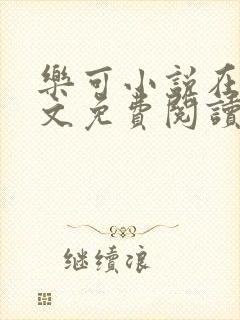 樂可小說在
文免費閱讀
继续浪